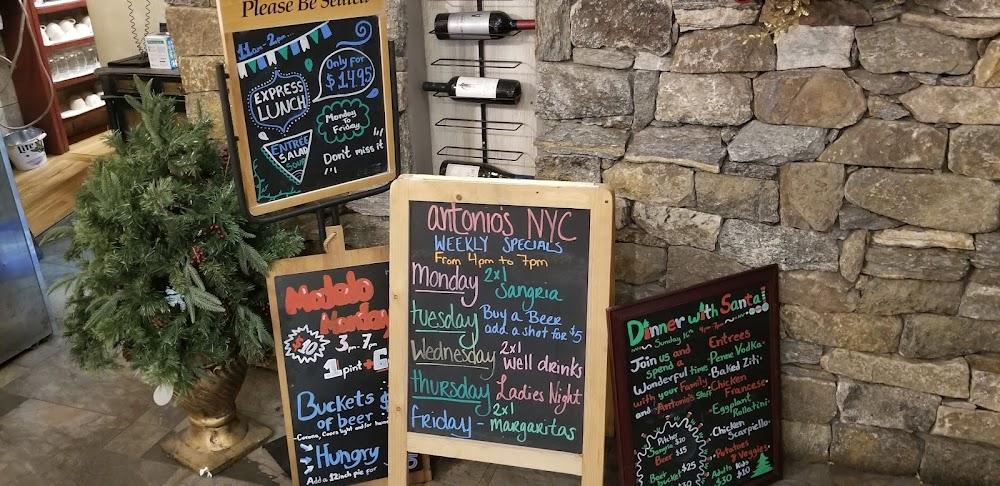 Please Be Seated
11am-2pm...
EXPRESS
LUNCH
ONLY FOR
$14.95
Monday
to
Friday
ENTREE
SALAD
SOUP
Don't miss it
Modelo
Monday
$10
3pm-7
1 pint +6
Buckets $
of beer
Corona, Coors light and/or
Hungry
Add a 12inch pie for
antonio's NYC
WEEKLY SPECIALS
From 4pm to 7pm
Monday 2x1
Sangria
tuesday Buy a Beer
add a shot for $5
Wednesday 2x1
Well drinks
thursday Ladies Night
Friday - 2x1
Margaritas
Dinner with Santa!
Sunday 16th 4pm-7pm
Join us and
spend a
Wonderful time
with your Family
and Antonio's Staff
Pitcher
Sangria $20
Beer $15
Beer
bucket $25
Entrees
-Penne Vodka-
-Baked Ziti-
-Chicken
Francese-
-Eggplant
Rollatini-
-Chicken
Scarpiello-
-Potatoes
& Veggies-
Adults Kids
$30 $10